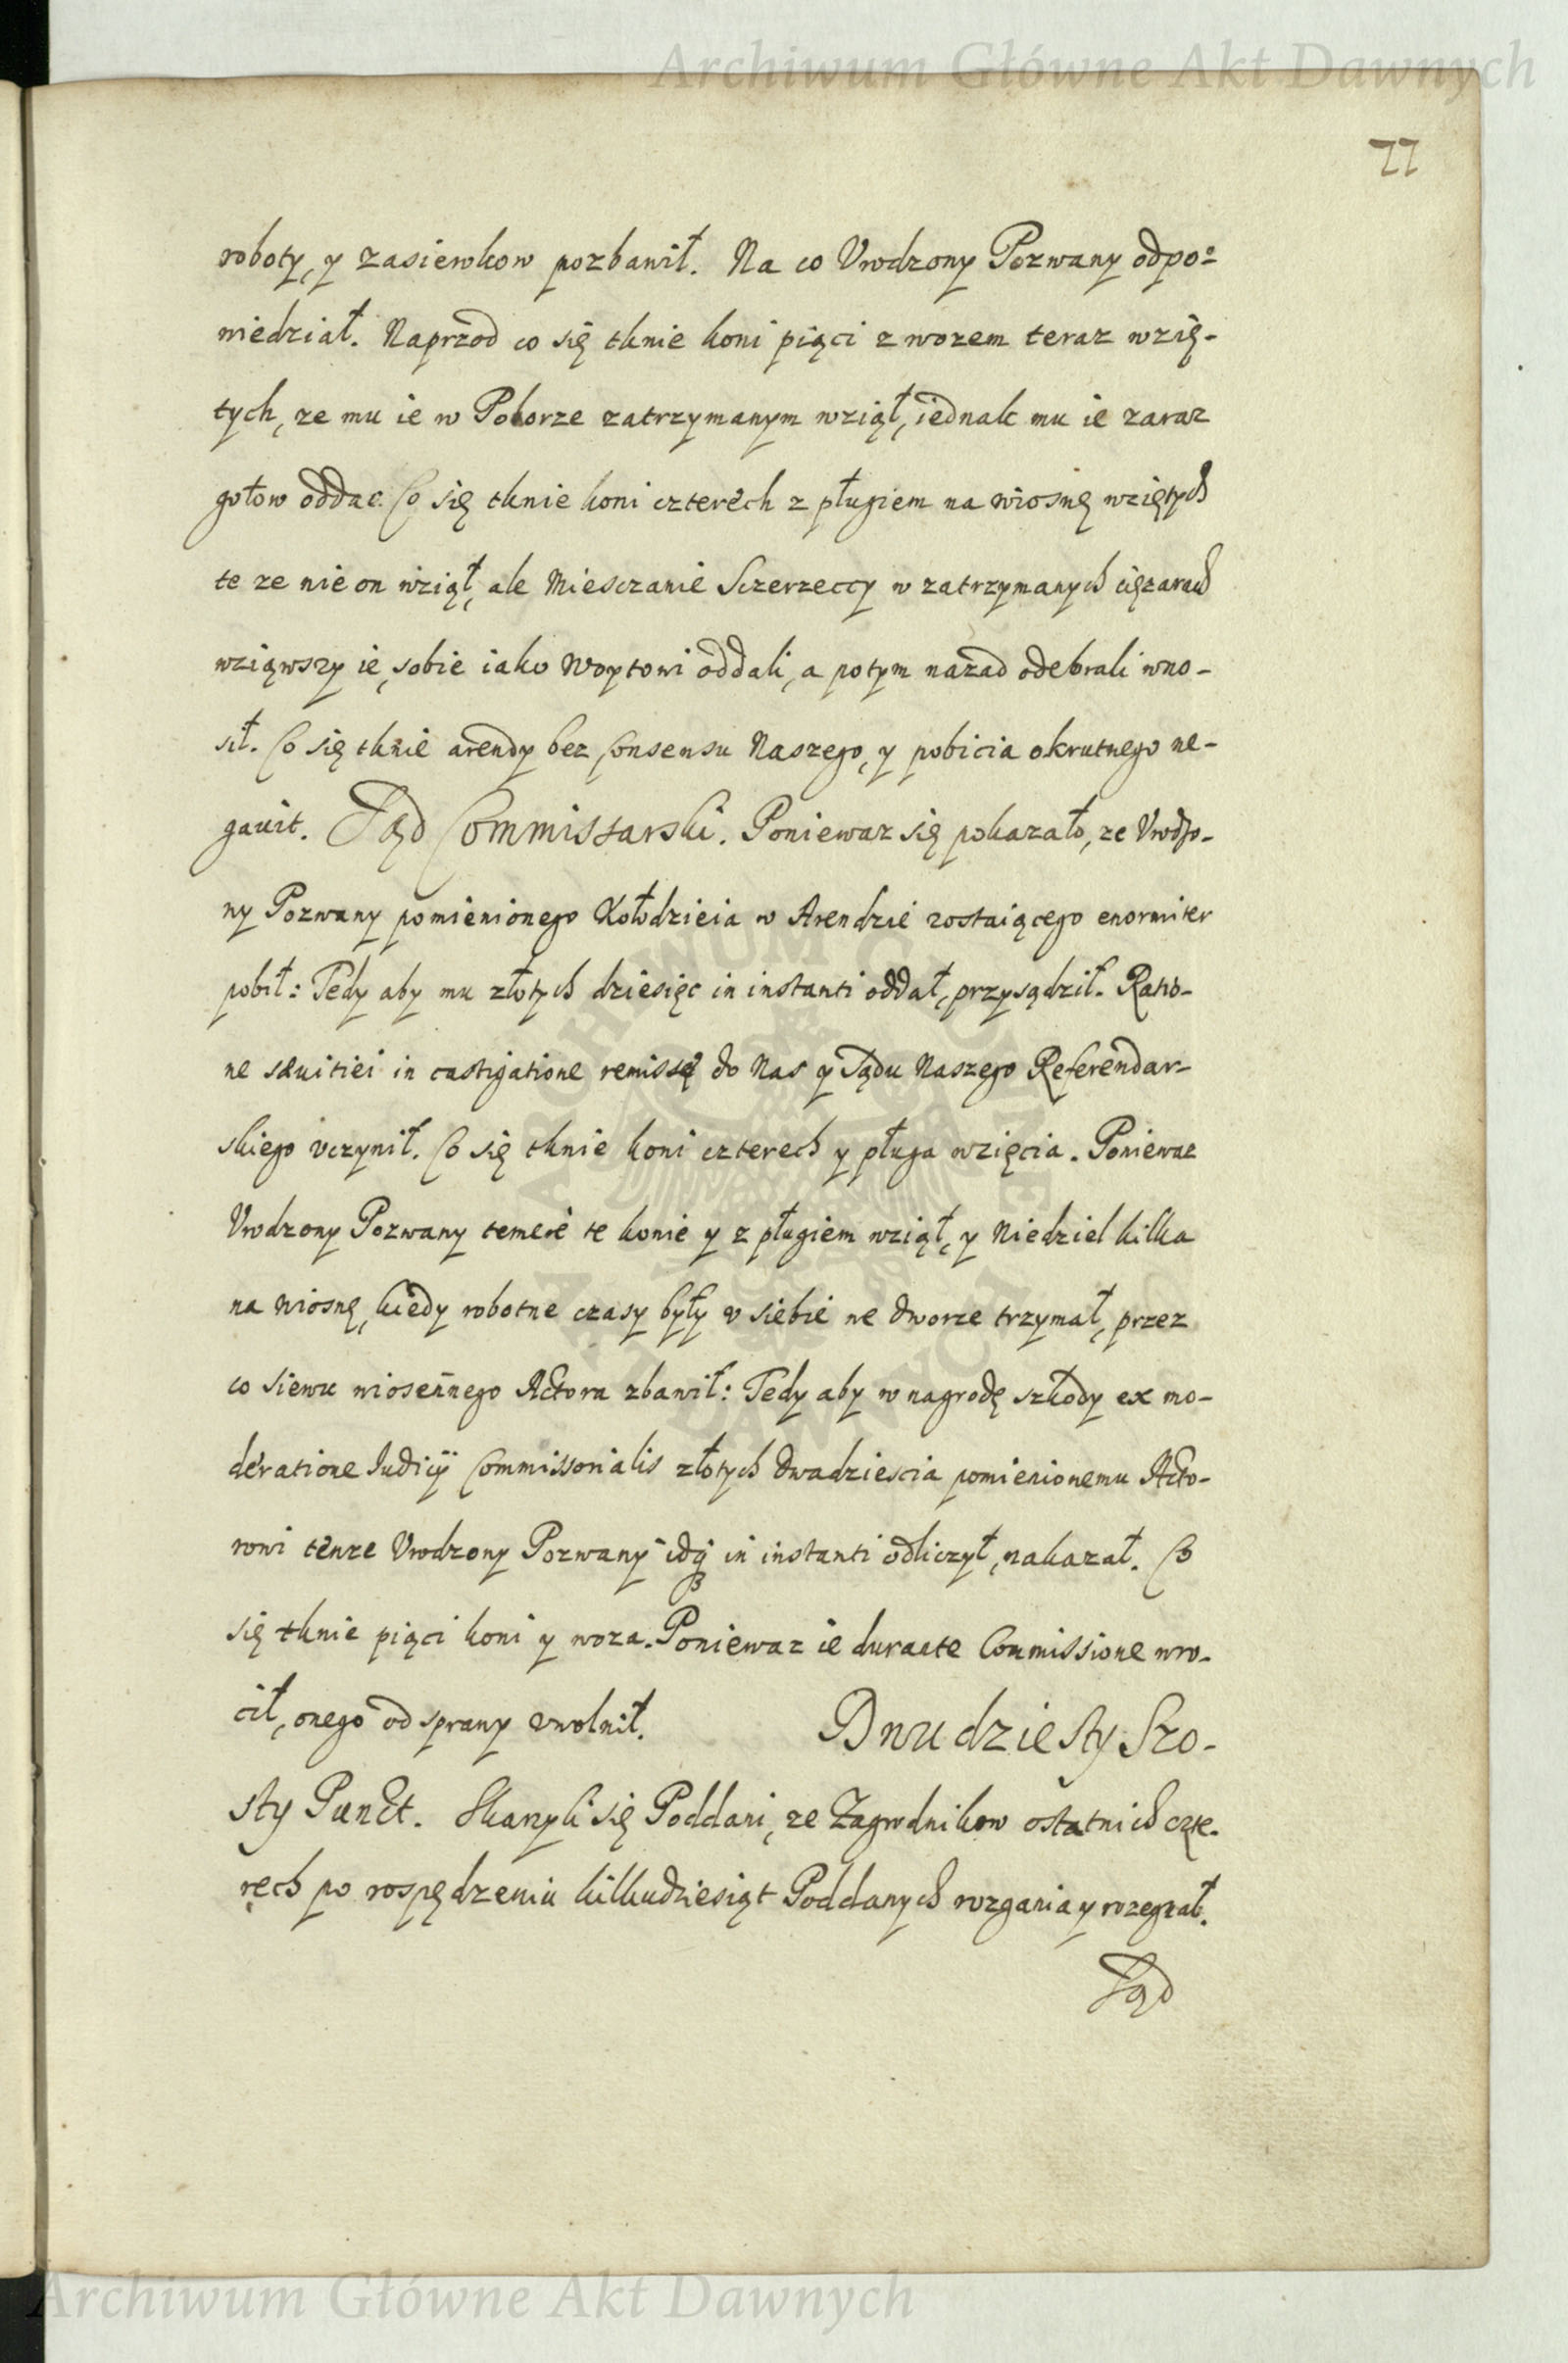 Archiwum Główne Akt Dawnych
77
roboty, y zasiewkow pozbawił. Na co Vrodzony Pozwany odpo-
wiedział. Naprzod co się tknie koni piąci z wozem teraz wzię-
tych, ze mu ie w Poborze zatrzymanym wziął, iednak mu ie zaraz
gotow oddac. Co się tknie koni czterech z pługiem na wiosnę wziętych
te ze nie on wziął, ale Miesczanie Sczerzeccy w zatrzymanych ciężarach
wziąwszy ie, sobie iako Woytowi oddali, a potym nazad odebrali wno-
sił. Co się tknie arendy bez Consensu Naszego, y pobicia okrutnego ne-
gauit. Sąd Commissarski. Poniewaz się pokazało, ze Vrodzo-
ny Pozwany pomienionego Kołodzieia w Arendzie zostaiącego enormiter
pobił: Tedy aby mu złotych dziesięc in instanti oddał, przysądził. Ratio-
ne sæuitiei in castigatione remissę do Nas y Sądu Naszego Referendar-
skiego vczynił. Co się tknie koni czterech y pługa wzięcia. Poniewaz
Vrodzony Pozwany temere te konie y z pługiem wziął, y Niedziel kilka
na wiosnę, kiedy robotne czasy były v siebie we dworze trzymał, przez
co siewu wiosennego Actora zbawił: Tedy aby w nagrodę szkody ex mo-
deratione Iudicij Commissorialis złotych dwadziescia pomienionemu Acto-
rowi tenze Vrodzony Pozwany in instanti odliczył, nakazał. Co
się tknie piąci koni y woza. Poniewaz ie durante Commissione wro-
cił, onego od sprawy vwolnił. Dwudziesty Szo-
sty Punct. Skarzyli się Poddani, ze Zagrodnikow ostatnich czte-
rech po rospędzeniu kilkudziesiąt Poddanych rozgania y rozegnał.
Sąd
Archiwum Główne Akt Dawnych